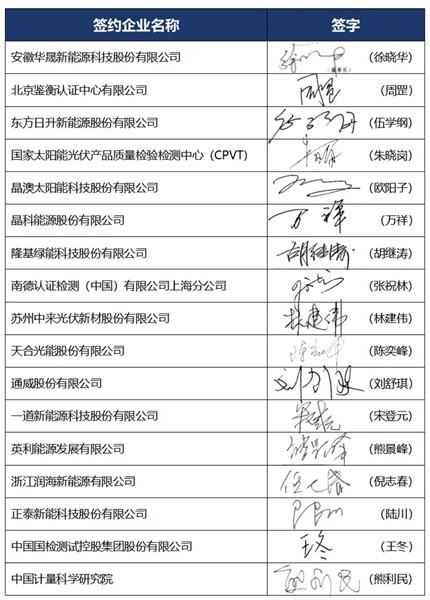 签约企业名称 签字
安徽华晟新能源科技股份有限公司 （徐晓华）
（董事长）
北京鉴衡认证中心有限公司 周罡 （周罡）
东方日升新能源股份有限公司 （伍学纲）
国家太阳能光伏产品质量检验检测中心（CPVT） （朱晓岗）
晶澳太阳能科技股份有限公司 （欧阳子）
晶科能源股份有限公司 万祥 （万祥）
隆基绿能科技股份有限公司 胡继涛 （胡继涛）
南德认证检测（中国）有限公司上海分公司 （张祝林）
苏州中来光伏新材股份有限公司 林建伟 （林建伟）
天合光能股份有限公司 （陈奕峰）
通威股份有限公司 （刘舒琪）
一道新能源科技股份有限公司 （宋登元）
英利能源发展有限公司 （熊景峰）
浙江润海新能源有限公司 （倪志春）
正泰新能科技股份有限公司 （陆川）
中国国检测试控股集团股份有限公司 王冬 （王冬）
中国计量科学研究院 熊利民 （熊利民）